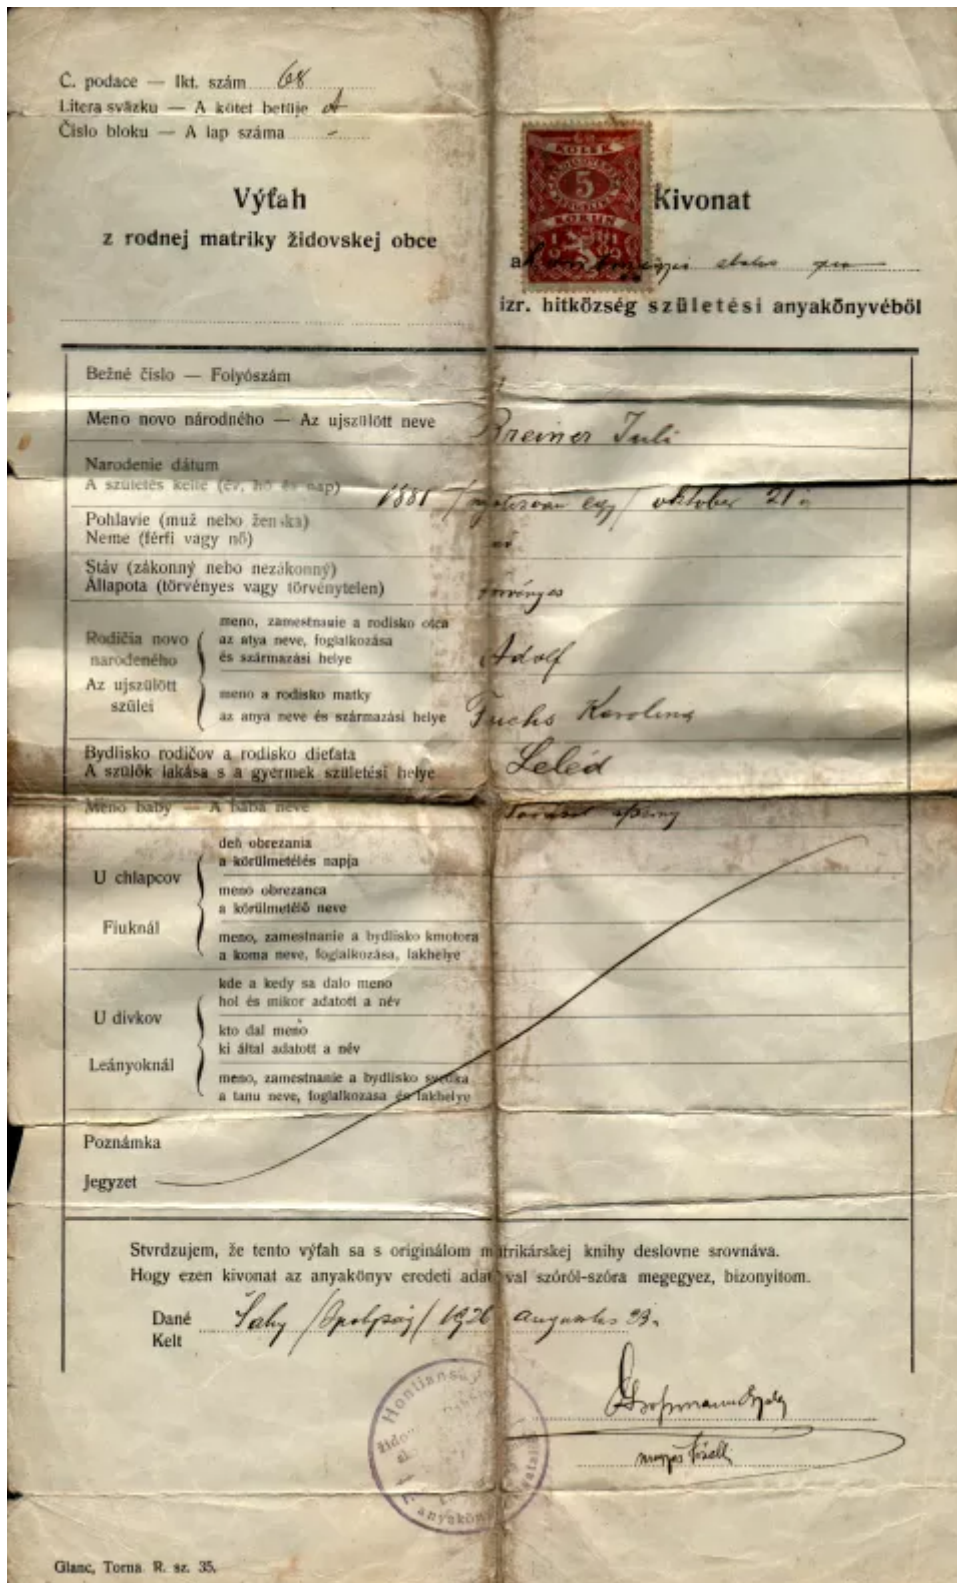 Č. podace — Ikt. szám 68
Litera sväzku — A kötet betűje A
Číslo bloku — A lap száma -
Výťah
z rodnej matriky židovskej obce
KOLEK
5
KORUN
Kivonat
izr. hitközség születési anyakönyvéből
Bežné číslo — Folyószám
Meno novo národného — Az ujszülött neve Breiner Juli
Narodenie dátum
A születés kelte (év, hó és nap) 1881 /nyolczvan egy/ oktober 21 én
Pohlavie (muž nebo ženska)
Neme (férfi vagy nő) nő
Stáv (zákonný nebo nezákonný)
Állapota (törvényes vagy törvénytelen) törvényes
Rodičia novo narodeného
Az ujszülött szülei
meno, zamestnanie a rodisko otca
az atya neve, foglalkozása
és származási helye Adolf
meno a rodisko matky
az anya neve és származási helye Fuchs Karolina
Bydlisko rodičov a rodisko dieťata
A szülők lakása s a gyermek születési helye Leléd
Meno baby — A bába neve
U chlapcov
Fiuknál
deň obrezania
a körülmetélés napja
meno obrezanca
a körülmetélő neve
meno, zamestnanie a bydlisko kmotora
a koma neve, foglalkozása, lakhelye
U divkov
Leányoknál
kde a kedy sa dalo meno
hol és mikor adatott a név
kto dal meno
ki által adatott a név
meno, zamestnanie a bydlisko svedka
a tanu neve, foglalkozása és lakhelye
Poznámka
Jegyzet
Stvrdzujem, že tento výťah sa s originálom matrikárskej knihy deslovne srovnáva.
Hogy ezen kivonat az anyakönyv eredeti adataival szóról-szóra megegyez, bizonyitom.
Dané
Kelt Šahy /Ipolyság/ 1926 augustus 23.
Glanc, Torna R. sz. 35.